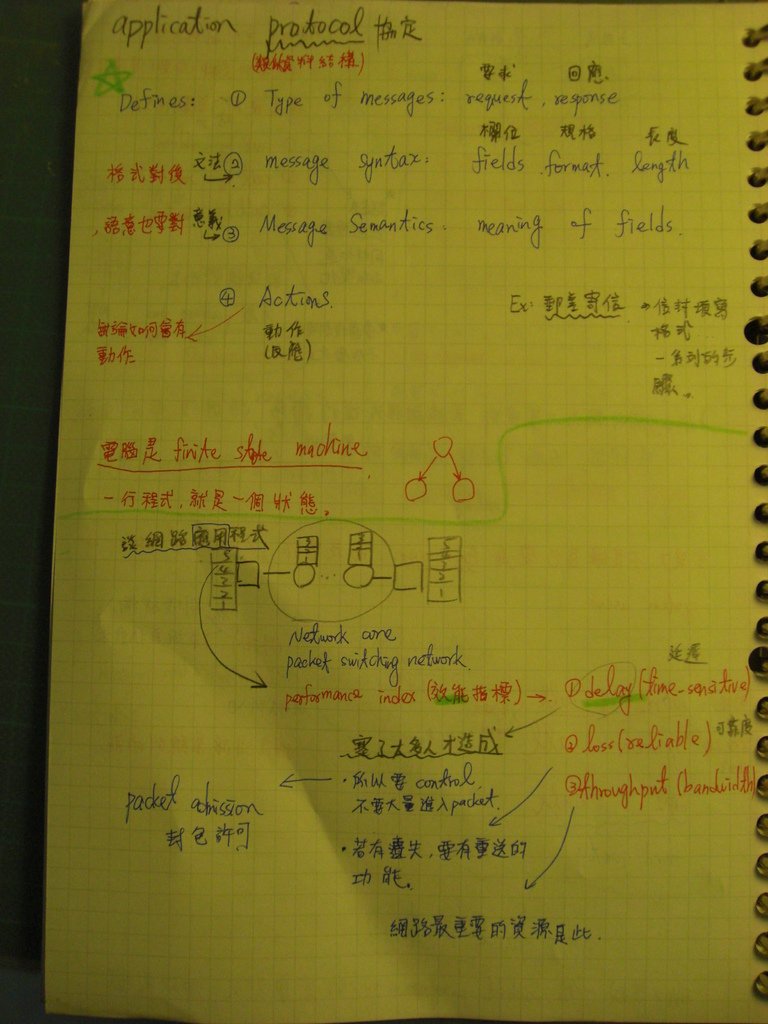 application protocol 協定
(類似資料結構)
要求 回應
Defines: ① Type of messages: request, response
欄位 規格 長度
格式對後 文法 ② message syntax: fields, format, length
,語意也要對 意義 ③ Message Semantics: meaning of fields.
④ Actions.
動作
(反應)
無論如何會有
動作
Ex: 郵差寄信 → 信封填寫
格式
一系列的步
驟。
電腦是 finite state machine
一行程式,就是一個狀態。
談網路應用程式
5
4
3
2
1
3
2
1
3
2
1
5
4
3
2
1
Network core
packet switching network.
performance index (效能指標) → ① delay (time-sensitive)
延遲
② loss (reliable) 可靠度
③ throughput (bandwidth)
塞了太多人才造成
·所以要 control,
不要大量進入packet.
packet admission
封包許可
·若有遺失,要有重送的
功能。
網路最重要的資源是此.